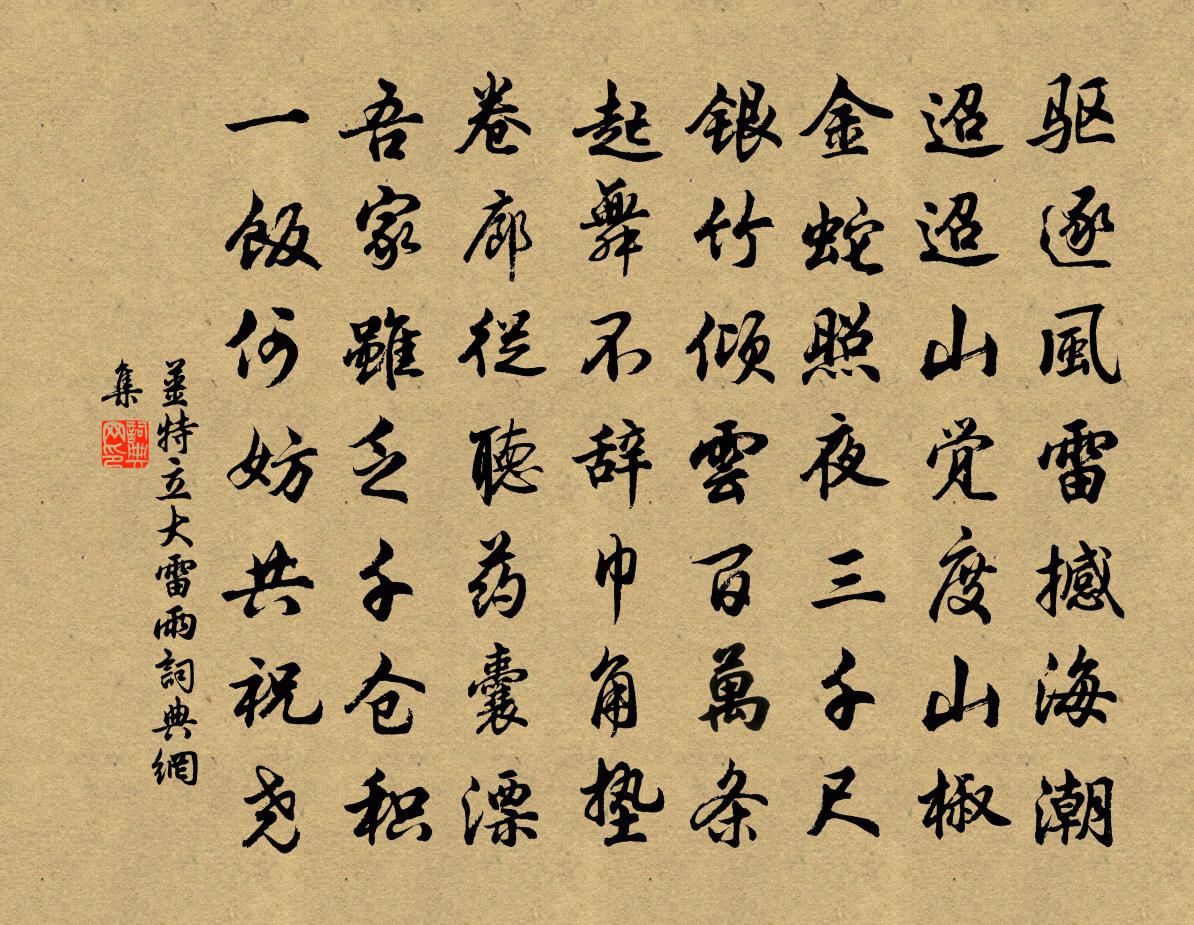 驱逐風雷撼海潮
迢迢山觉度山椒
金蛇照夜三千尺
銀竹倾雲百萬条
起舞不辞巾角垫
卷廊從聽药囊漂
吾家雖乏千仓积
一飯何妨共祝尧
薑特立大雷雨詞典網
集
詞典网印